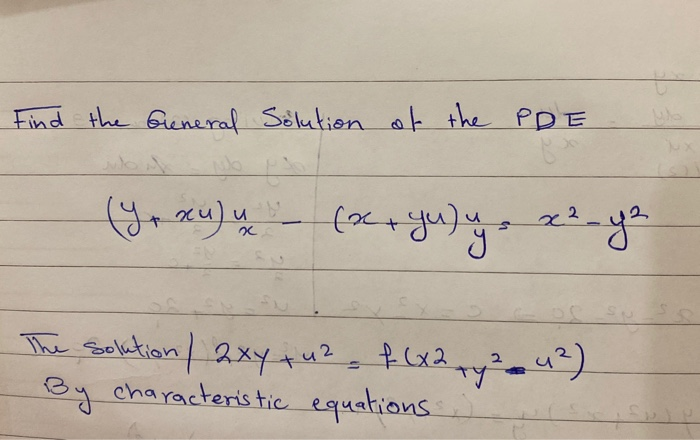 Find the General Solution of the PDE
(y + xu) u_x - (x + yu) u_y = x² - y²
The solution / 2xy + u² = f(x2 + y² - u²)
By characteristic equations